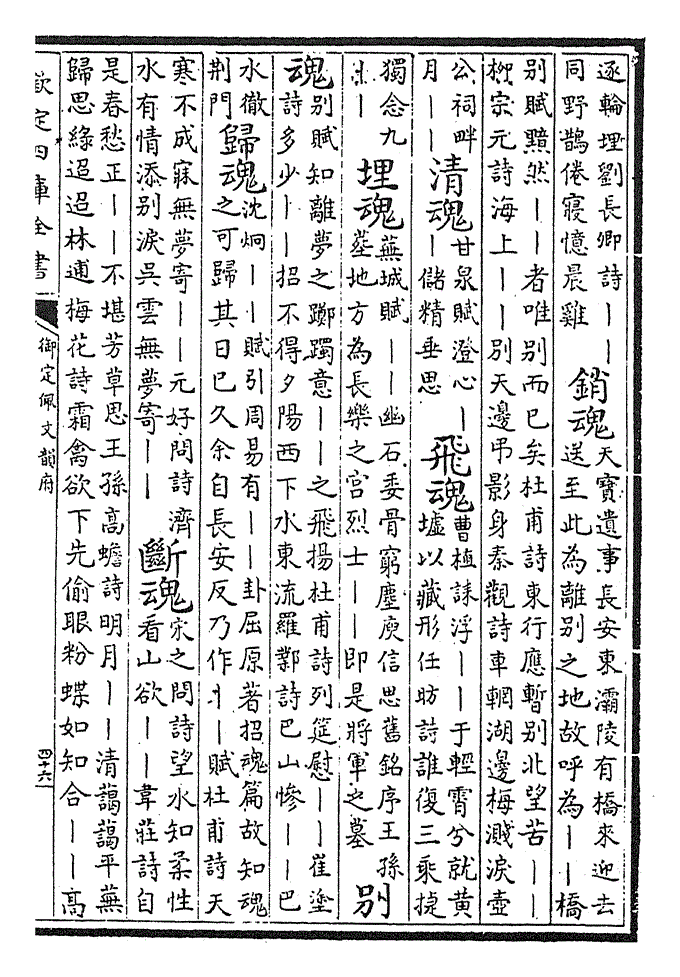 逐輪埋劉長卿詩丨丨
同野鵲倦寢憶晨雞
銷魂
天寶遺事長安東灞陵有橋來迎去
送至此為離別之地故呼為丨丨橋
別賦黯然丨丨者唯別而已矣杜甫詩東行應暫別北望苦丨丨
柳宗元詩海上丨丨別天邊弔影身秦觀詩車輞湖邊梅濺淚壺
公祠畔
月丨丨
清魂
甘泉賦澄心丨
丨儲精垂思
飛魂
曹植誄浮丨丨于輕霄兮就黃
墟以藏形任昉詩誰復三乘捷
獨念九
丨丨
埋魂
蕪城賦丨丨幽石委骨窮塵庾信思舊銘序王孫
墓地方為長樂之宮烈士丨丨即是將軍之墓
別
魂
別賦知離夢之躑躅意丨丨之飛揚杜甫詩列筵慰丨丨崔塗
詩多少丨丨招不得夕陽西下水東流羅鄴詩巴山慘丨丨巴
水徹
荆門
歸魂
沈炯丨丨賦引周易有丨丨卦屈原著招魂篇故知魂
之可歸其日已久余自長安反乃作丨丨賦杜甫詩天
寒不成寐無夢寄丨丨元好問詩濟
水有情添別淚吳雲無夢寄丨丨
斷魂
宋之問詩望水知柔性
看山欲丨丨韋莊詩自
是春愁正丨丨不堪芳草思王孫高蟾詩明月丨丨清藹藹平蕪
歸思綠迢迢林逋梅花詩霜禽欲下先偷眼粉蝶如知合丨丨高
欽定四庫全書
御定佩文韻府
四十六